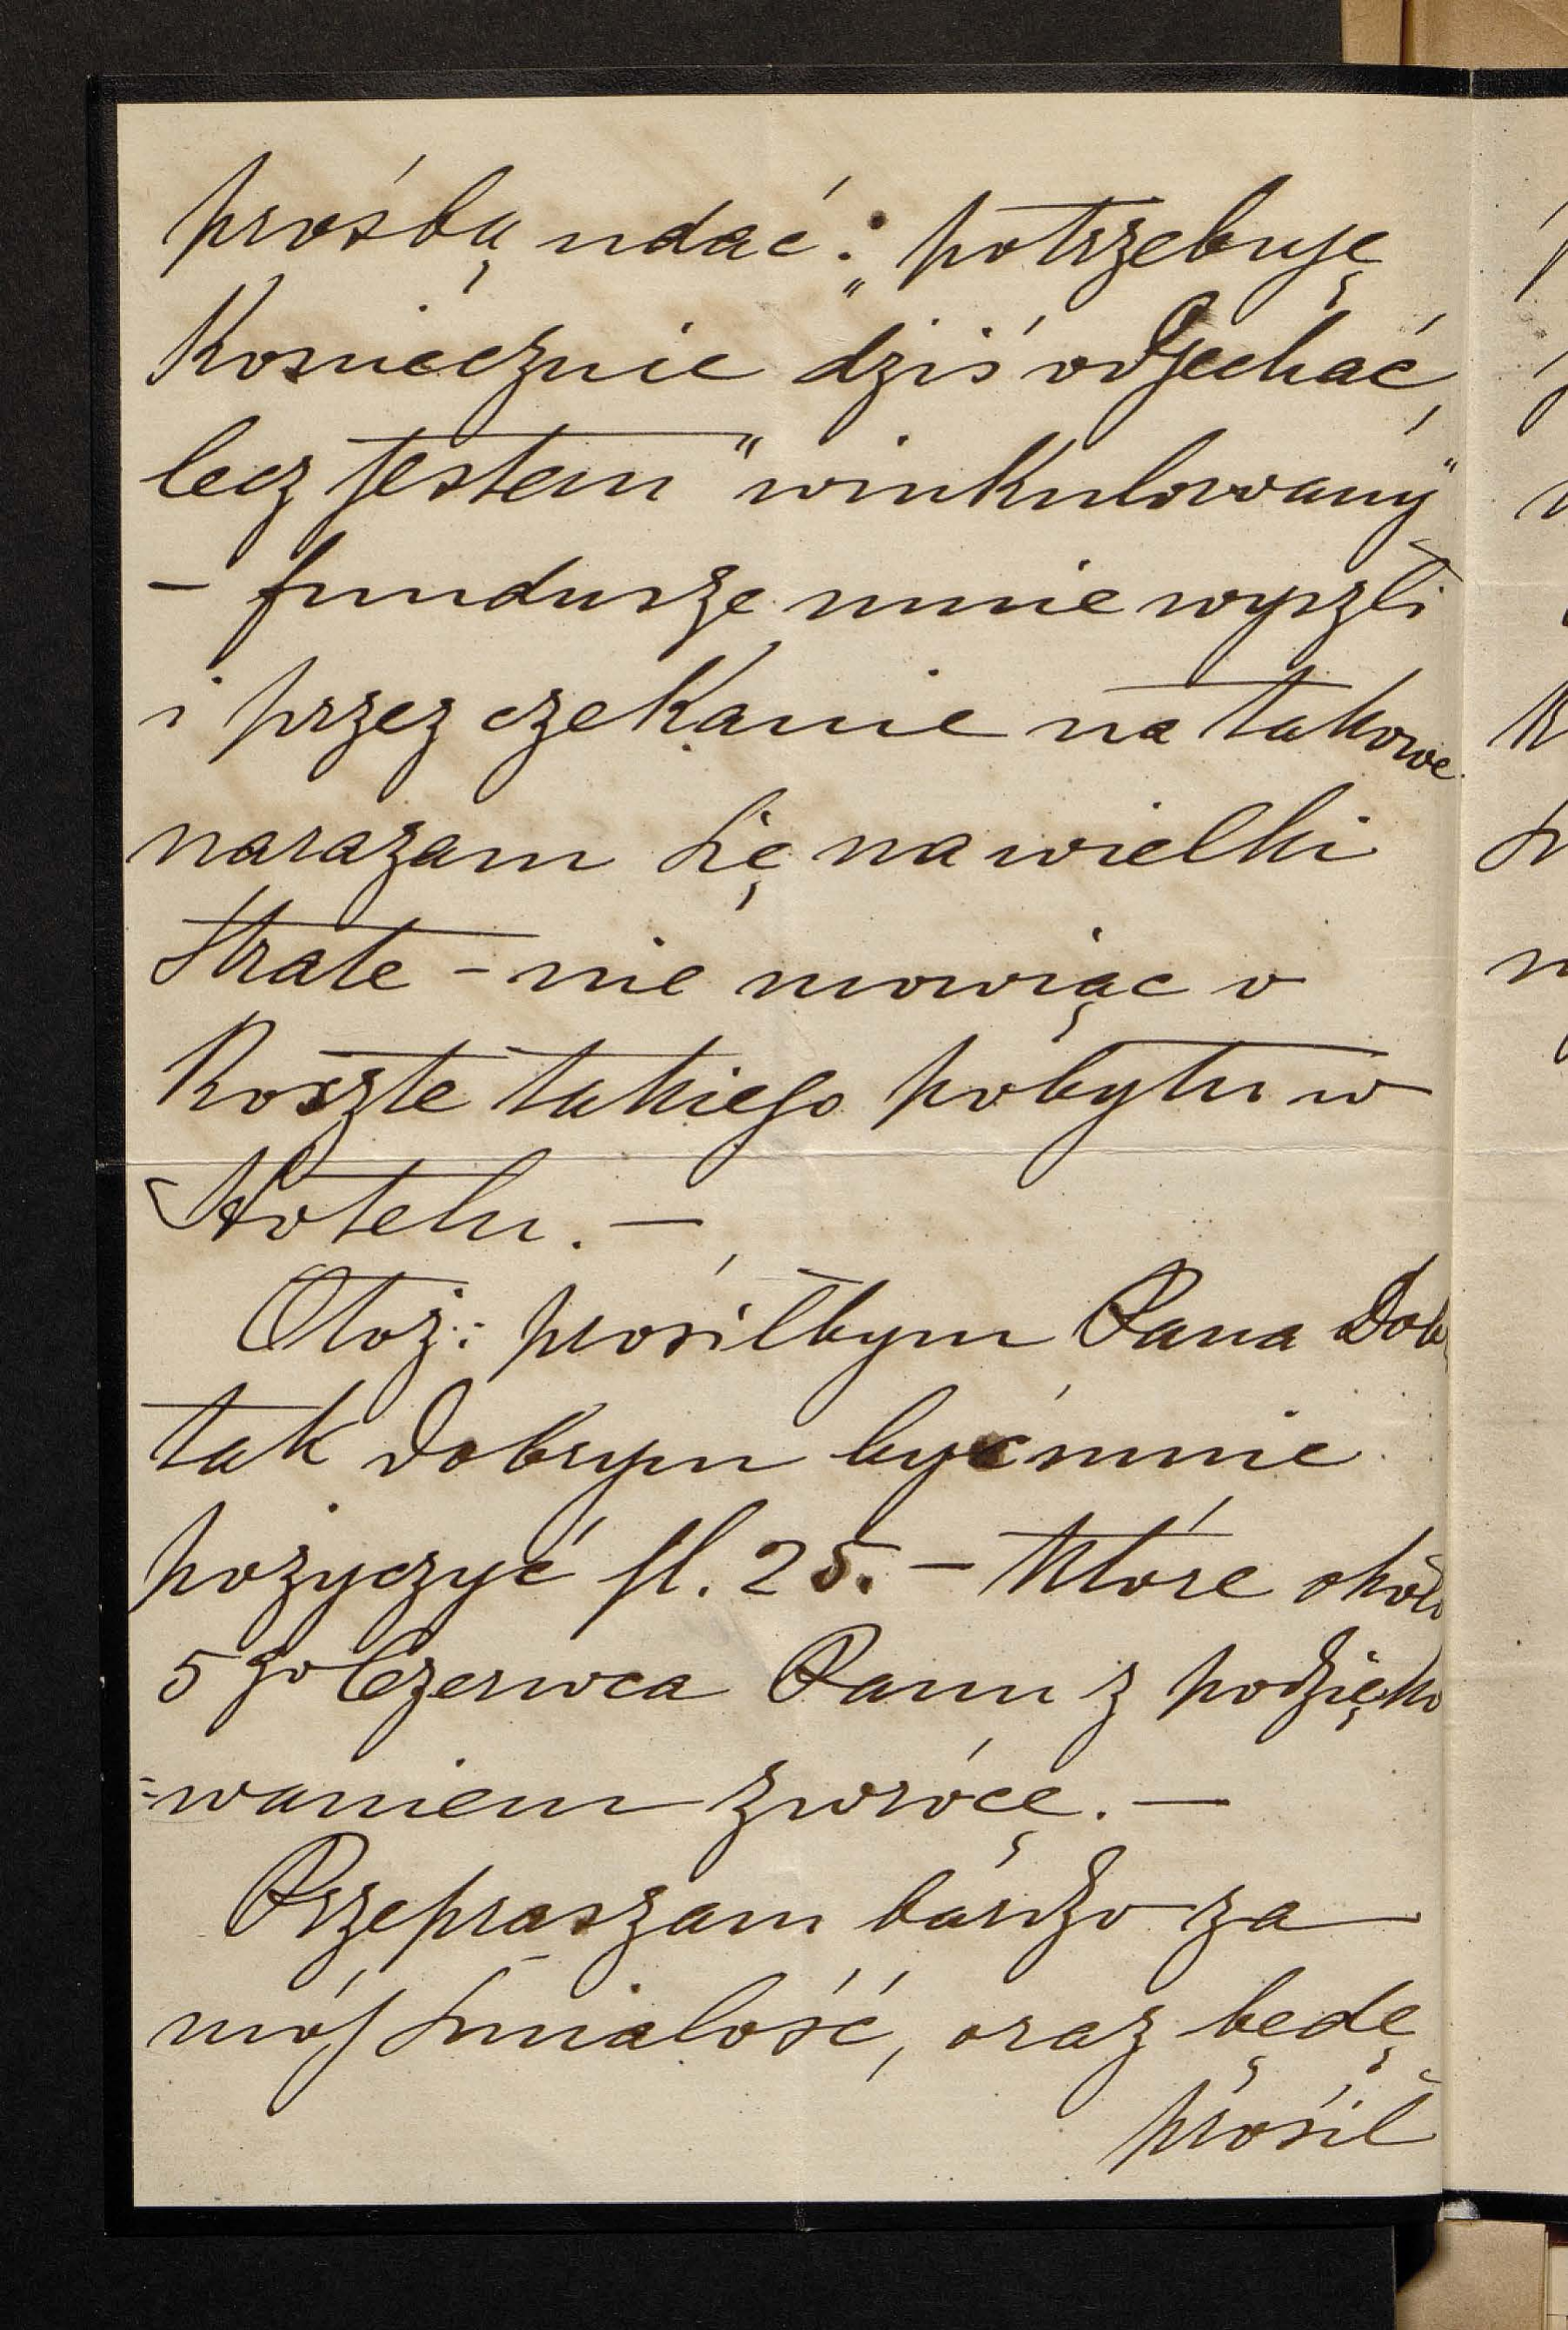 prośbą udać: „potrzebuję
Koniecznie dziś odjechać,
lecz jestem "winkulowany"
– fundusze mnie wyszli
i przez czekanie na takowe
narazam się na wielki
Strate – nie mowiąc o
Koszte takiego pobytu w
Hotelu. –
Otoż: prosiłbym Pana Dob
tak dobrym być mnie
pożyczyć fl. 25. – Które około
5go Czerwca Panu z podzięko
=waniem zwrócę. –
Przepraszam bardzo za
mój smialość, oraz będę
prosił